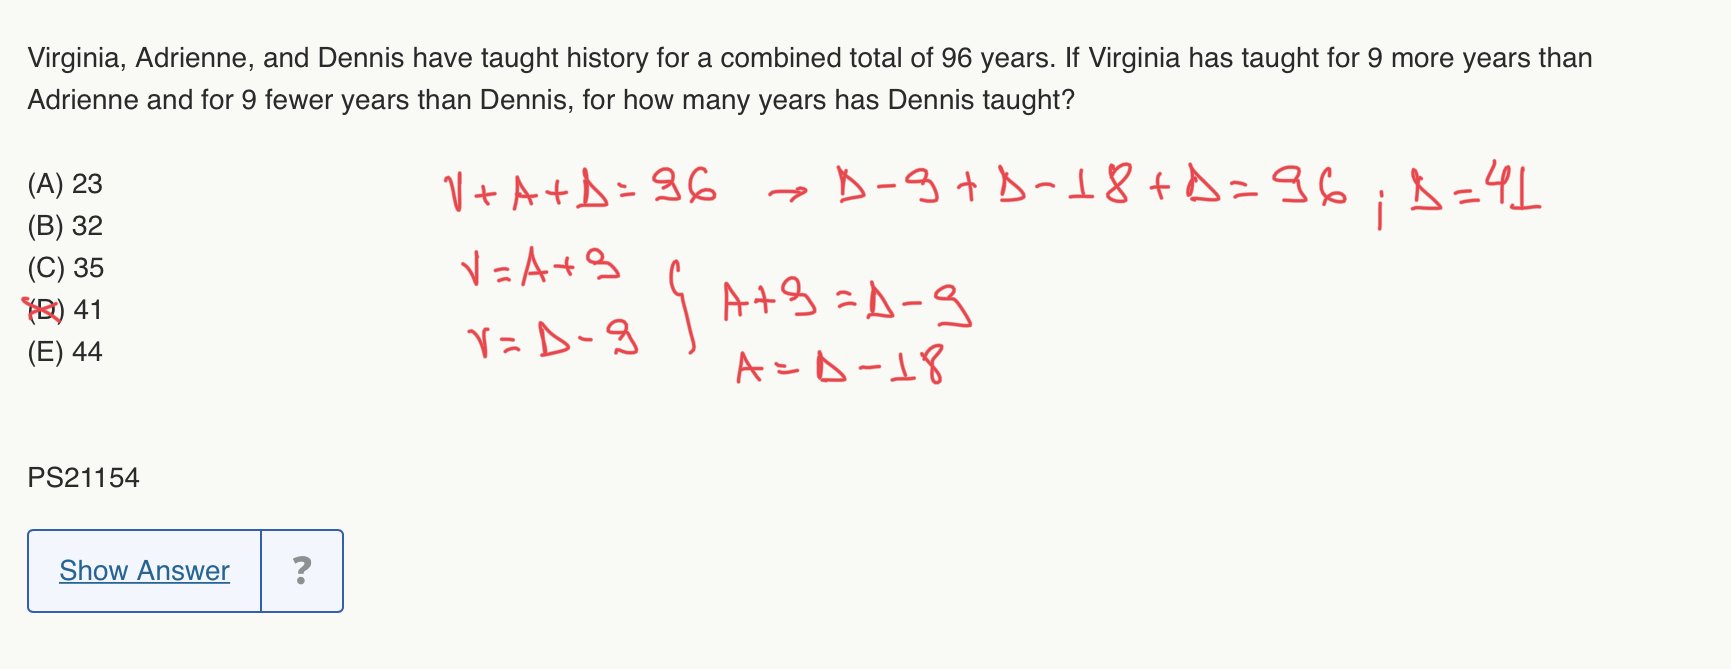 Virginia, Adrienne, and Dennis have taught history for a combined total of 96 years. If Virginia has taught for 9 more years than
Adrienne and for 9 fewer years than Dennis, for how many years has Dennis taught?
(A) 23
(B) 32
(C) 35
(D) 41
(E) 44
V + A + D = 96 → D - 9 + D - 18 + D = 96 ; D = 41
V = A + 9
V = D - 9
A + 9 = D - 9
A = D - 18
PS21154
Show Answer ?